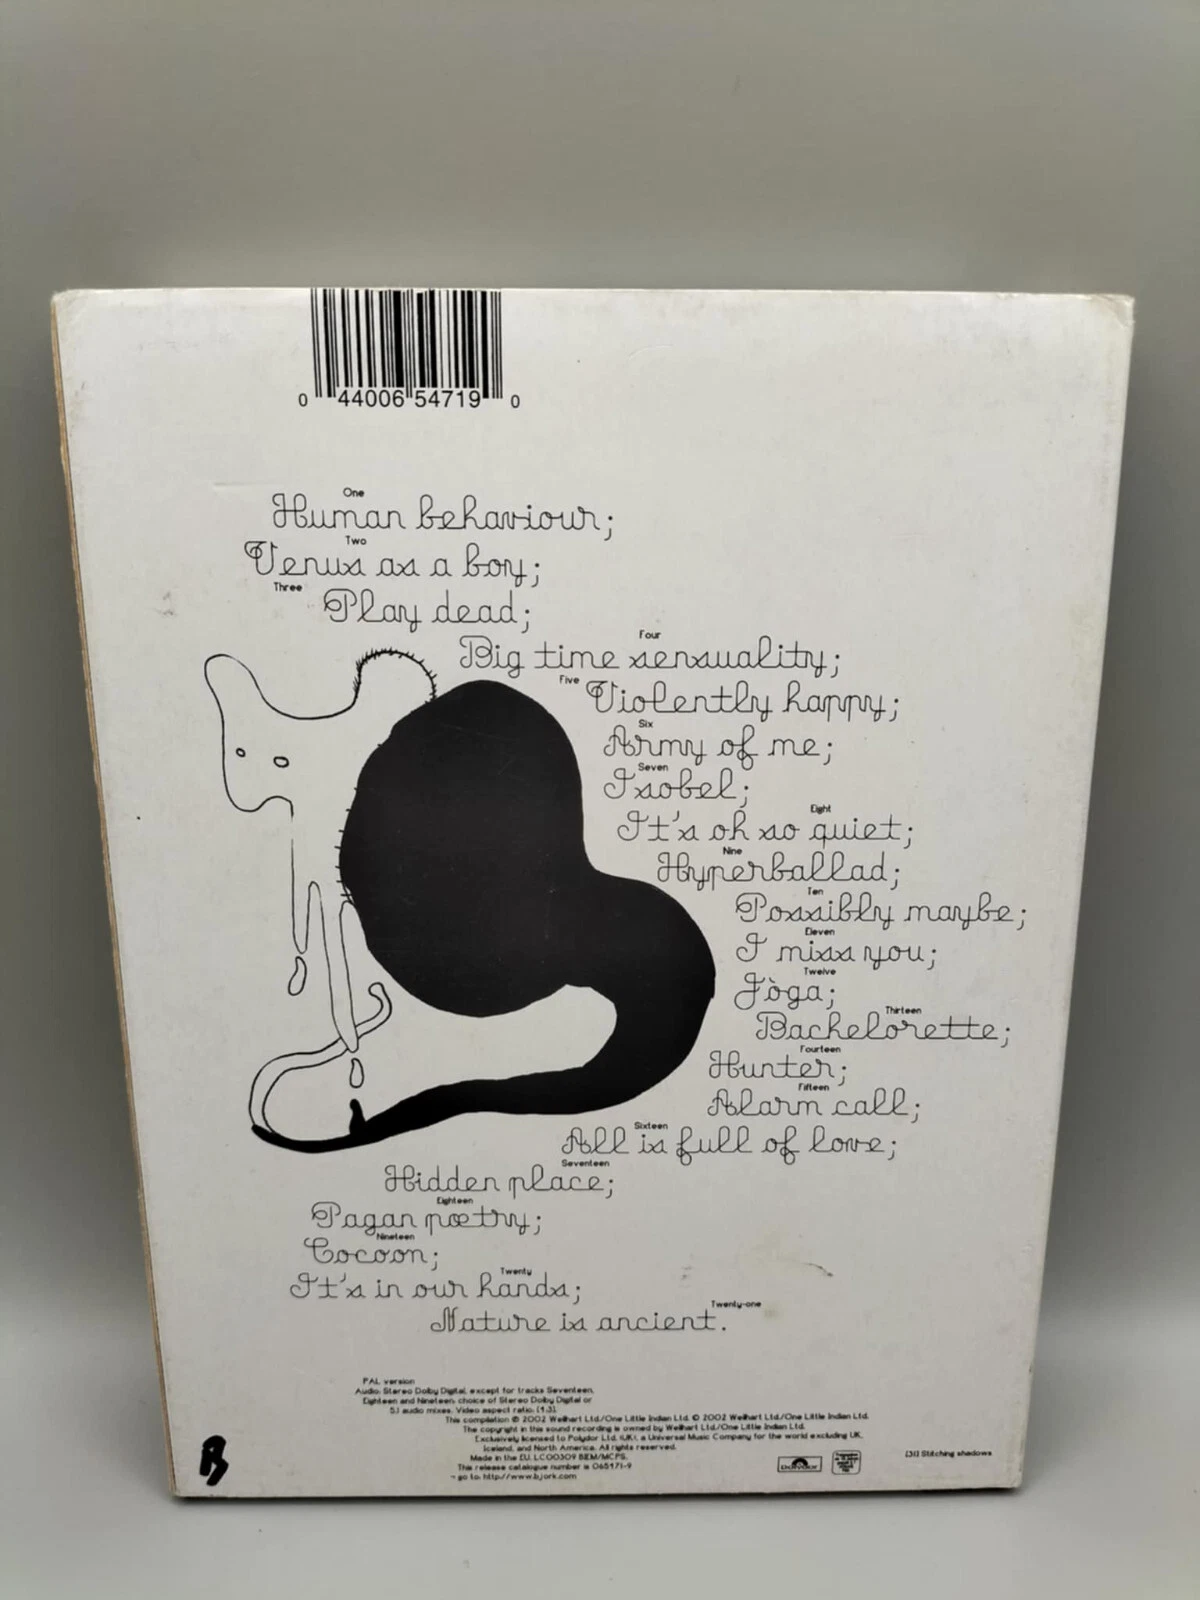 0 44006 54719 0
One
Human behaviour;
Two
Venus as a boy;
Three
Play dead;
Four
Big time sensuality;
Five
Violently happy;
Six
Army of me;
Seven
Isobel;
Eight
It's oh so quiet;
Nine
Hyperballad;
Ten
Possibly maybe;
Eleven
I miss you;
Twelve
Jòga;
Thirteen
Bachelorette;
Fourteen
Hunter;
Fifteen
Alarm call;
Sixteen
All is full of love;
Seventeen
Hidden place;
Eighteen
Pagan pœtry;
Nineteen
Cocoon;
Twenty
It's in our hands;
Twenty-one
Nature is ancient.
PAL version
Audio: Stereo Dolby Digital, except for tracks Seventeen,
Eighteen and Nineteen: choice of Stereo Dolby Digital or
5.1 audio mixes. Video aspect ratio: (4:3).
This compilation ℗ 2002 Wellhart Ltd./One Little Indian Ltd. © 2002 Wellhart Ltd./One Little Indian Ltd.
The copyright in this sound recording is owned by Wellhart Ltd./One Little Indian Ltd.
Exclusively licensed to Polydor Ltd. (UK), a Universal Music Company for the world excluding UK,
Iceland, and North America. All rights reserved.
Made in the EU. LC00309 BIEM/MCPS.
This release catalogue number is 065471-9
¬ go to: http://www.bjork.com
Polydor
[31] Stitching shadows
B